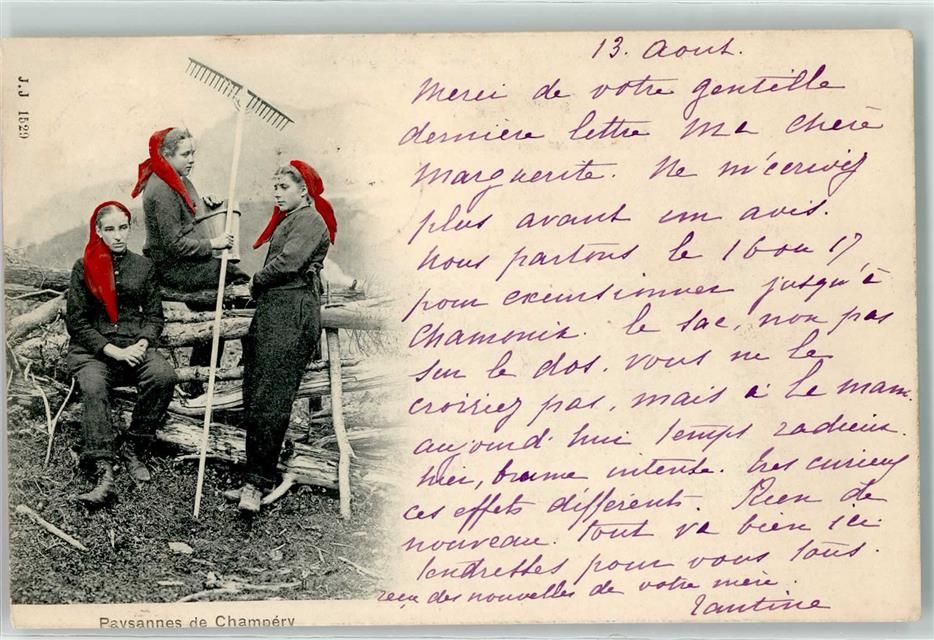 J.J 1529
13. Aout.
Merci de votre gentille
dernière lettre ma chère
Marguerite. Ne m'écrivez
plus avant un avis.
Nous partons le 16 ou 17
pour excursionner jusqu'à
Chamonix. le sac, non pas
sur le dos, vous ne le
croiriez pas, mais à la main.
aujourd'hui temps radieux.
hier, brume intense. très curieux
ces effets différents. Rien de
nouveau. tout va bien ici
tendresses pour vous tous.
reçu des nouvelles de votre mère.
Tantine
Paysannes de Champéry